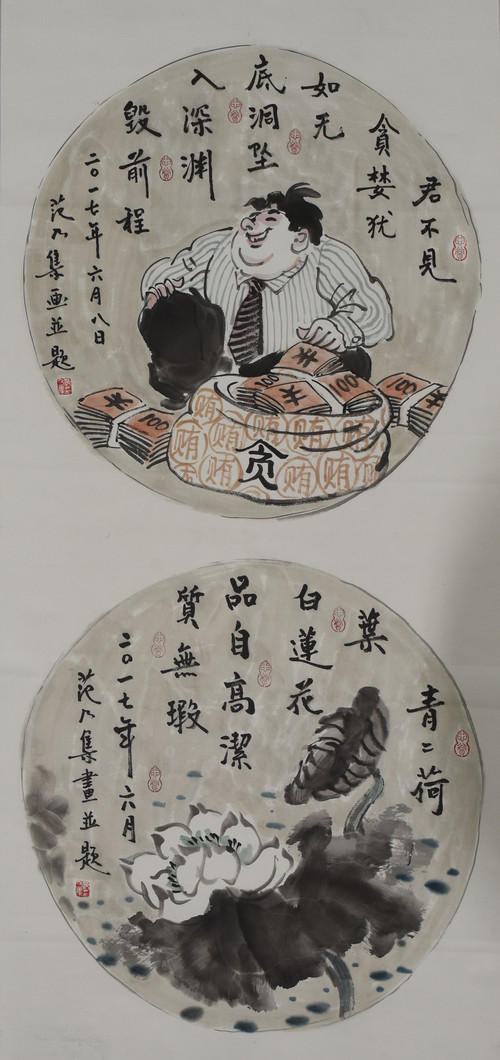 君不见
貪婪犹
如无
底洞坠
入深渊
毀前程
二〇一七年六月八日
范九集画並题
100
100
100
100
贪
贿
贿
贿
贿
贿
贿
贿
贿
青二荷
葉
白蓮花
品自高潔
質無瑕
二〇一七年六月
范九集畫並题